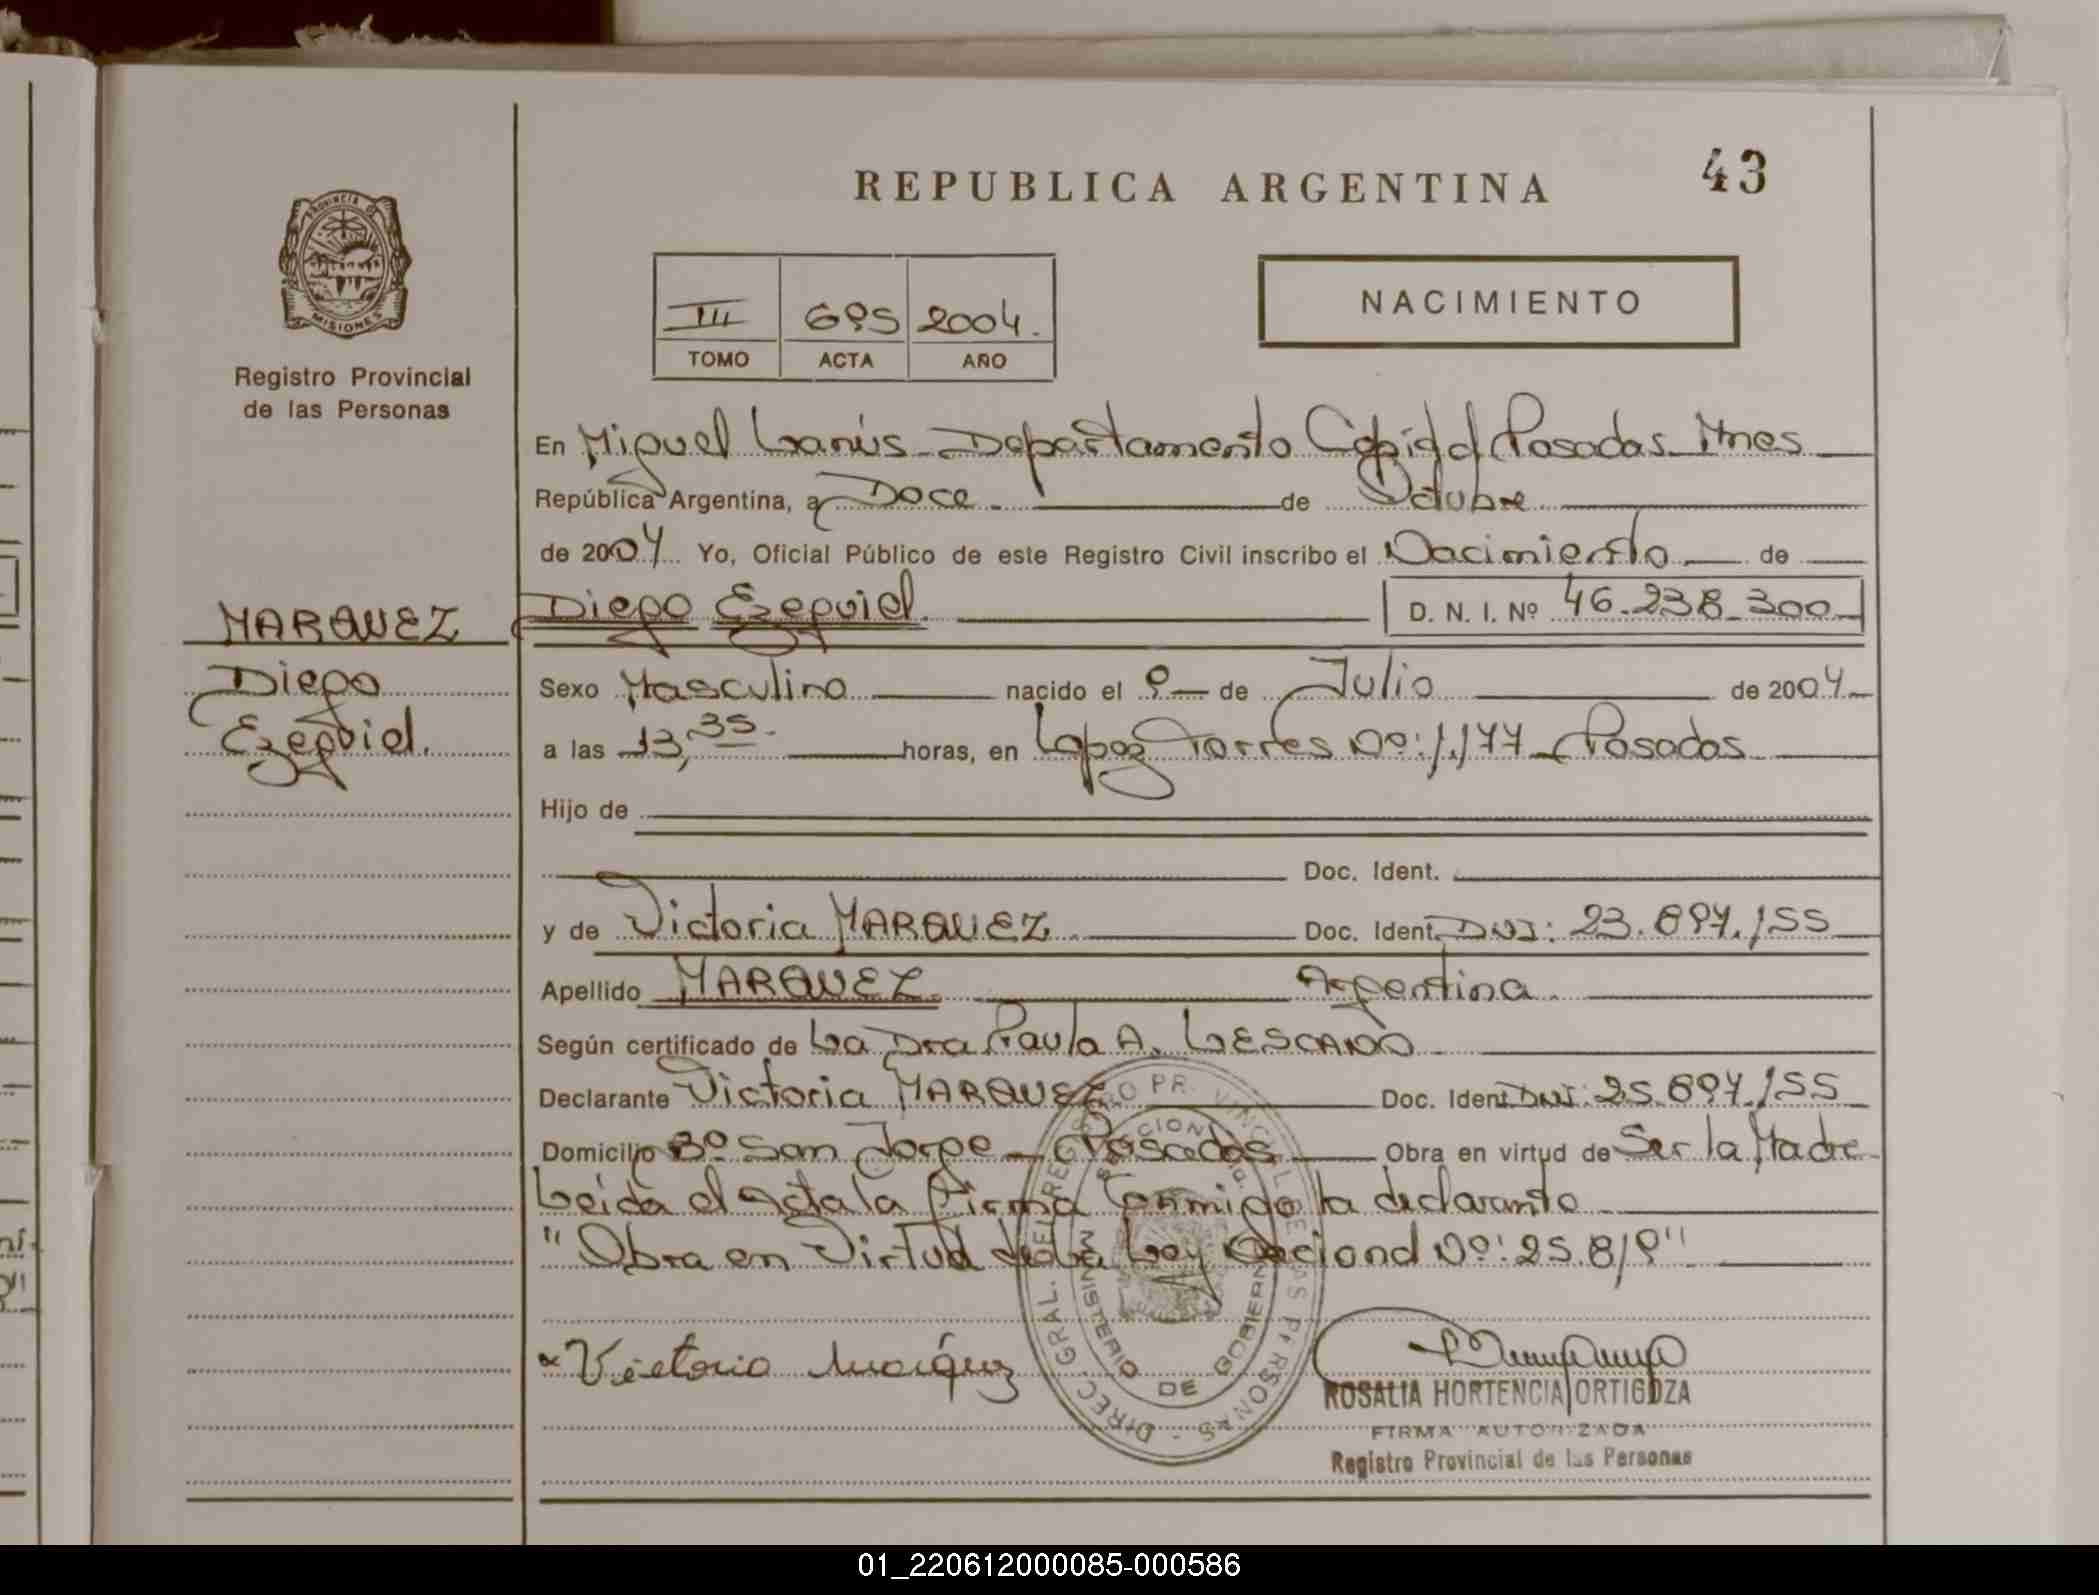 43
REPUBLICA ARGENTINA
PROVINCIA D
MISIONES
Registro Provincial
de las Personas
III 695 2004.
TOMO ACTA AÑO
NACIMIENTO
En Miguel Lanús - Departamento Capital Posadas Mnes
República Argentina, a Doce. de Octubre
de 2004 Yo, Oficial Público de este Registro Civil inscribo el Nacimiento de
Diego Ezequiel. D. N. I. Nº 46.238.300
MARQUEZ
Diego
Ezequiel.
Sexo Masculino nacido el 9 de Julio de 2004
a las 13,35. horas, en Lopez Torres Nº: 1.177 - Posadas
Hijo de
Doc. Ident.
y de Victoria MARQUEZ. Doc. Ident. DNI: 23.897.155
Apellido MARQUEZ. Argentina.
Según certificado de La Dra Paula A. LESCANO
Declarante Victoria MARQUEZ Doc. Ident DNI: 25.897.155
Domicilio Bº San Jorge - Posadas Obra en virtud de Ser la Madre
Leida el acta la firma conmigo la declarante
"Obra en Virtud de la Ley Nacional Nº: 25.819"
Victoria Marquez
DIREC. GRAL. DEL REGISTRO PROVINCIAL DE LAS PERSONAS
MINISTERIO DE GOBIERNO
ROSALIA HORTENCIA ORTIGOZA
FIRMA AUTORIZADA
Registro Provincial de las Personas
01_220612000085-000586